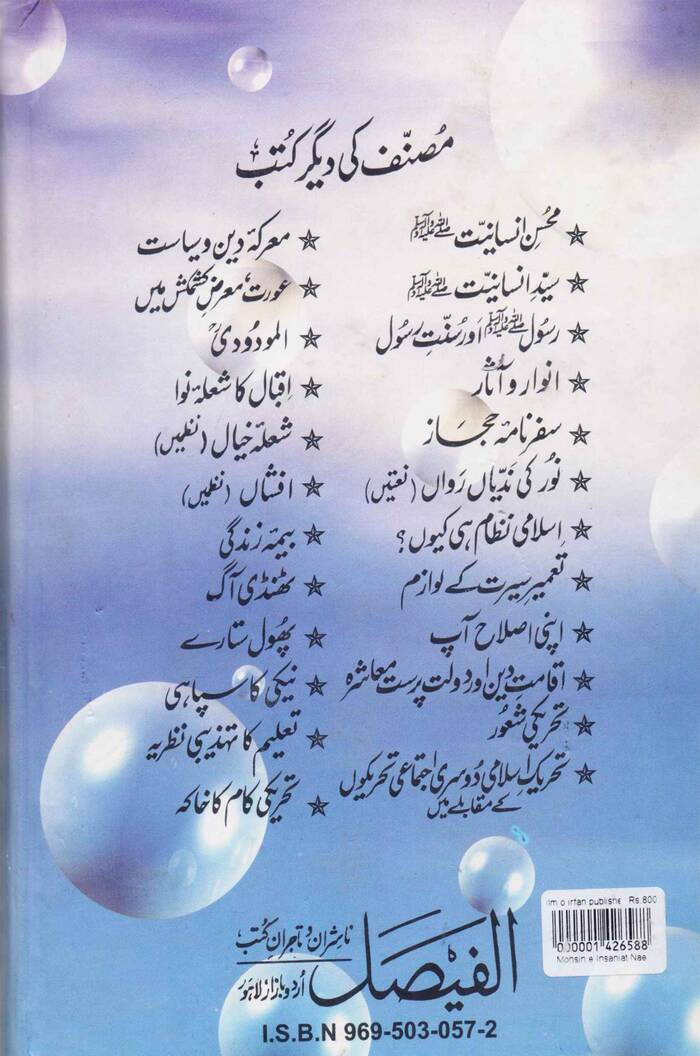 مُصنّف کی دیگر کُتب
✯ محسنِ انسانیّت ﷺ
✯ سیّدِ انسانیّت ﷺ
✯ رسُول ﷺ اور سُنّتِ رسُول
✯ انوار و آثار
✯ سفر نامۂ حجاز
✯ نُور کی ندیاں رَواں (نعتیں)
✯ اِسلامی نظام ہی کیوں؟
✯ تعمیرِ سیرت کے لوازم
✯ اپنی اصلاح آپ
✯ اقامتِ دین اور دولت پرست معاشرہ
✯ تحریکی شعُور
✯ تحریکِ اسلامی دُوسری اجتماعی تحریکوں
کے مقابلے میں
✯ معرکۂ دین و سیاست
✯ عورت معرضِ کشمکش میں
✯ المودُودیؒ
✯ اِقبال کا شعلۂ نوا
✯ شعلۂ خیال (نظمیں)
✯ افشاں (نظمیں)
✯ بیمۂ زندگی
✯ ٹھنڈی آگ
✯ پھُول ستارے
✯ نیکی کا سپاہی
✯ تعلیم کا تہذیبی نظریہ
✯ تحریکی کام کا خاکہ
الفیصل
ناشران و تاجرانِ کُتب
اُردو بازار لاہور
I.S.B.N 969-503-057-2
ilm o irfan publishe Rs.800
000001 426588
Mohsin e Insaniat Nae